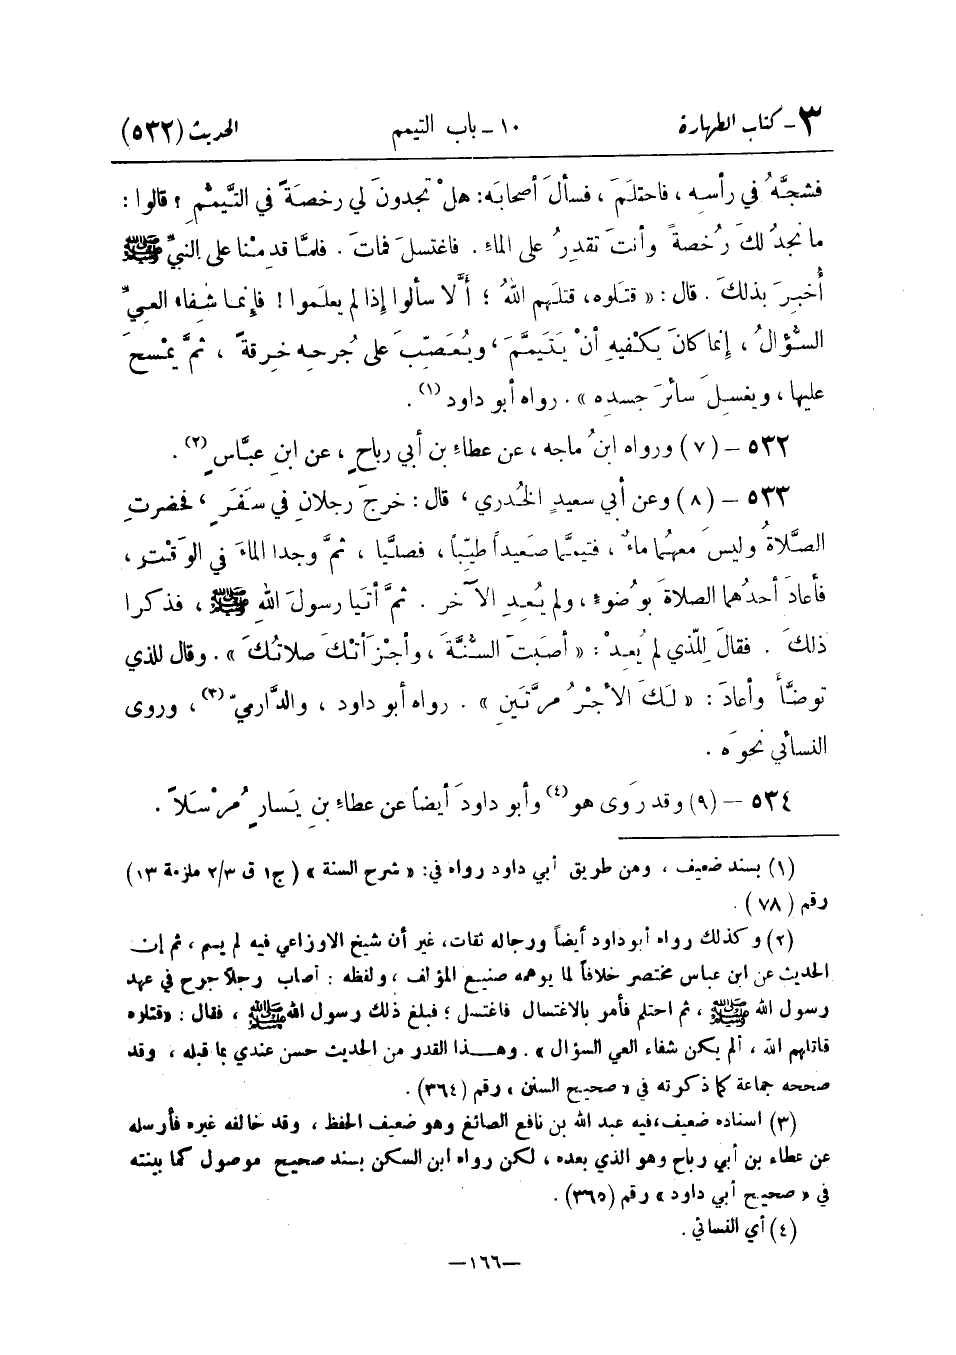 ٣ - كتاب الطهارة ١٠ - باب التيمم الحديث (٥٣٢)
فشجَّهُ في رأسِه ، فاحتلمَ ، فسألَ أصحابَه: هلْ تجدونَ لي رخصةً في التَّيمُّمِ ؟ قالوا :
ما نجدُ لكَ رُخصةً وأنتَ تقدِرُ على الماءِ . فاغتسلَ فماتَ . فلمَّا قدِمْنا على النبيِّ ﷺ
أُخبِرَ بذلكَ . قال : « قتلوه، قتلَهم اللهُ ؛ ألَّا سألوا إذا لم يعلَموا ! فإنما شِفاءُ العِيِّ
السُّؤالُ ، إنما كانَ يكْفيهِ أنْ يتَيمَّمَ ، ويُعَصِّبَ على جُرحِه خِرقةً ، ثمَّ يمْسحَ
عليها ، ويغسِلَ سائرَ جسدِه » . رواه أبو داود (١) .
٥٣٢ - (٧) ورواه ابنُ ماجه ، عن عطاءِ بن أبي رباحٍ ، عن ابنِ عبَّاسٍ (٢) .
٥٣٣ - (٨) وعن أبي سعيدٍ الخُدري ، قال : خرجَ رجلانِ في سفَرٍ ، فحضرتِ
الصَّلاةُ وليسَ معهُما ماءٌ ، فتيمَّما صَعيداً طيِّباً ، فصلَّيا ، ثمَّ وجدا الماءَ في الوَقْتِ ،
فأعادَ أحدُهما الصلاةَ بوُضوءٍ ، ولم يُعِدِ الآخر . ثمَّ أتَيا رسولَ اللهِ ﷺ ، فذكرا
ذلكَ . فقالَ لِلَّذي لم يُعِدْ : « أصَبتَ السُّنَّةَ ، وأجْزَأتْكَ صلاتُكَ » . وقال للذي
توضَّأَ وأعادَ : « لكَ الأجْرُ مرَّتَينِ » . رواه أبو داود ، والدَّارميّ (٣) ، وروى
النسائي نحوَه .
٥٣٤ - (٩) وقد رَوى هو (٤) وأبو داودَ أيضاً عن عطاءِ بنِ يَسارٍ مُرْسَلاً .
(١) بسند ضعيف ، ومن طريق أبي داود رواه في: « شرح السنة » ( ج١ ق ٢/٣ ملزمة ١٣)
رقم ( ٧٨) .
(٢) وكذلك رواه أبو داود أيضاً ورجاله ثقات، غير أن شيخ الاوزاعي فيه لم يسم ، ثم إن
الحديث عن ابن عباس مختصر خلافاً لما يوهمه صنيع المؤلف ، ولفظه : أصاب رجلاً جرح في عهد
رسول الله ﷺ ، ثم احتلم فأمر بالاغتسال فاغتسل ؛ فبلغ ذلك رسول الله ﷺ ، فقال : «قتلوه
قاتلهم الله ، ألم يكن شفاء العي السؤال » . وهـــذا القدر من الحديث حسن عندي بما قبله ، وقد
صححه جماعة كما ذكرته في « صحيح السنن » رقم (٣٦٤) .
(٣) اسناده ضعيف،فيه عبد الله بن نافع الصائغ وهو ضعيف الحفظ ، وقد خالفه غيره فأرسله
عن عطاء بن أبي رباح وهو الذي بعده ، لكن رواه ابن السكن بسند صحيح موصول كما بينته
في « صحيح أبي داود » رقم (٣٦٥) .
(٤) أي النسائي .
—١٦٦—